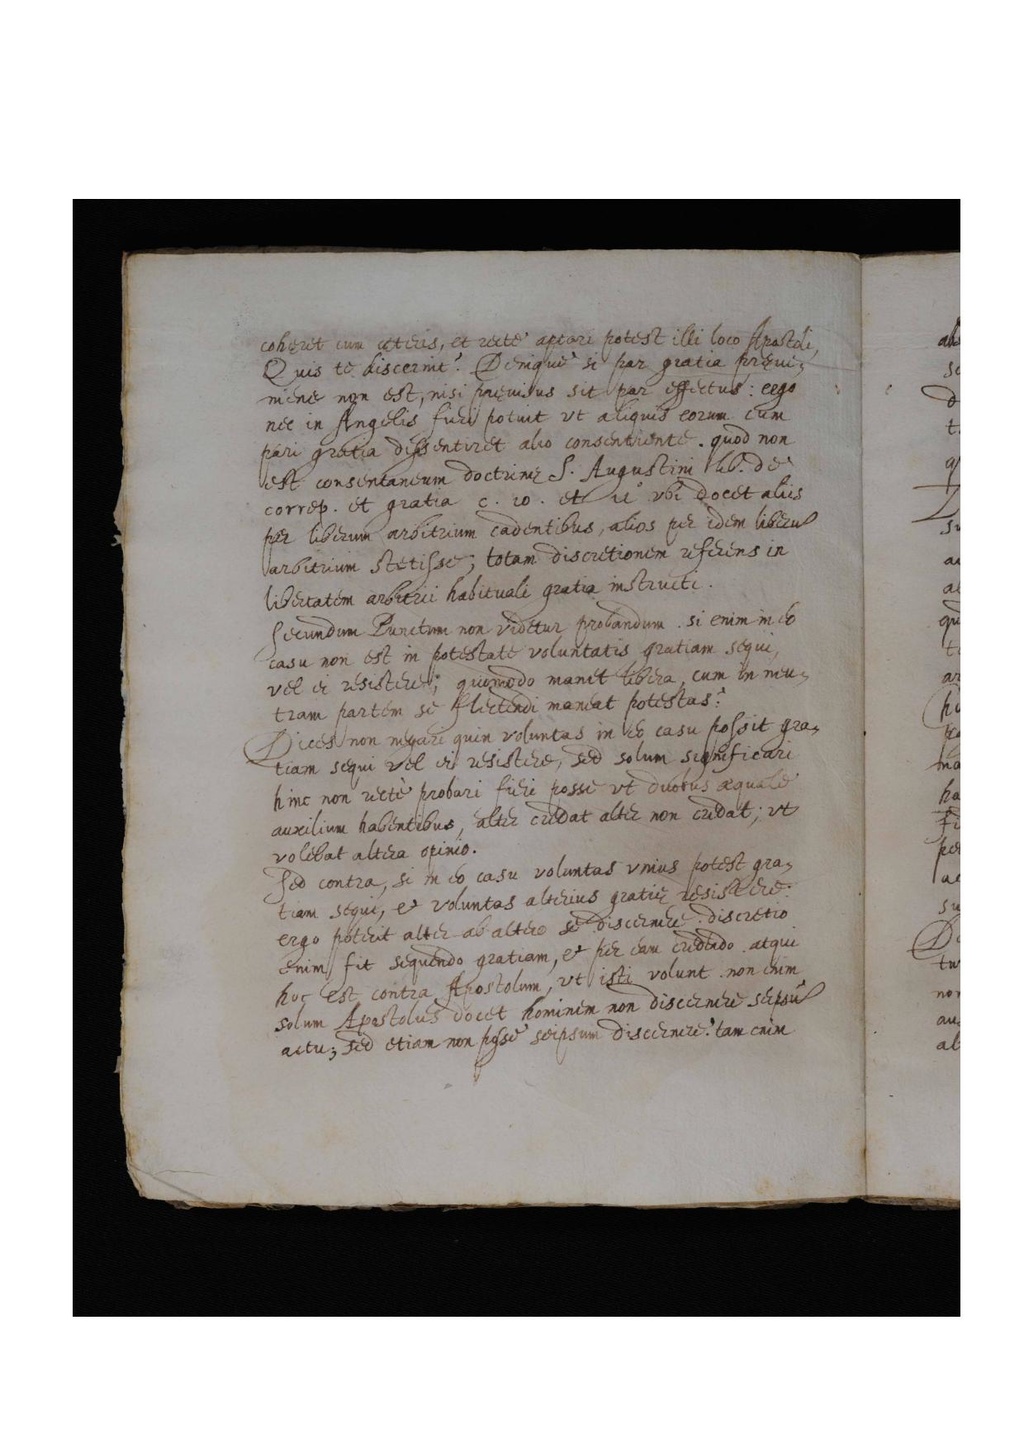 cohęret cum cęteris, et rectè aptari potest illi loco Apostoli,
Quis te discernit? Deniquè si par gratia pręui,
niens non est, nisi pręuisus sit par effectus: ergo
nec in Angelis fieri potuit vt aliquis eorum cum
pari gratia dissentiret alio consentiente. quod non
est consentaneum doctrinę S. Augustini lib. de
correp. et gratia c. 10. et 11 vbi docet aliis
per liberum arbitrium cadentibus, alios per idem liberū
arbitrium stetisse; totam discretionem referens in
libertatem arbitrii habituali gratia instructi.
Secundum Punctum non videtur probandum. si enim in eo
casu non est in potestate voluntatis gratiam sequi,
vel ei resistere; quomodo manet libera, cum in neu,
tram partem se flectendi maneat potestas?
Dices non negari quin voluntas in eo casu possit gra,
tiam sequi vel ei resistere, sed solum significari
hinc non rectè probari fieri posse vt duobus æquale
auxilium habentibus, alter credat alter non credat; vt
volebat altera opinio.
Sed contra, si in eo casu voluntas vnius potest gra,
tiam sequi, et voluntas alterius gratię resistere:
ergo poterit alter ab altero se discernere. discretio
enim fit sequendo gratiam, et per eam credendo. atqui
hoc est contra Apostolum, vt isti volunt. non enim
solum Apostolus docet hominem non discernere seipsū
actu; sed etiam non posse seipsum discernere. tam enim